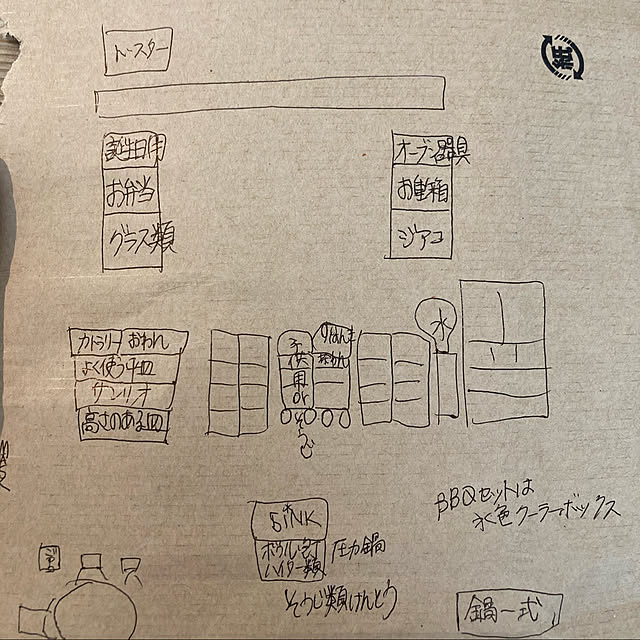 紙
トースター
誕生日用
お弁当
グラス類
オーブン器具
お重箱
ジアコ
カトラリー おわん
よく使う平皿
サンリオ
高さのある皿
子供用or
水
SINK
ボウル・包丁
ハイター類
圧力鍋
そうじ類けんとう
BBQセットは
水色クーラーボックス
鍋一式